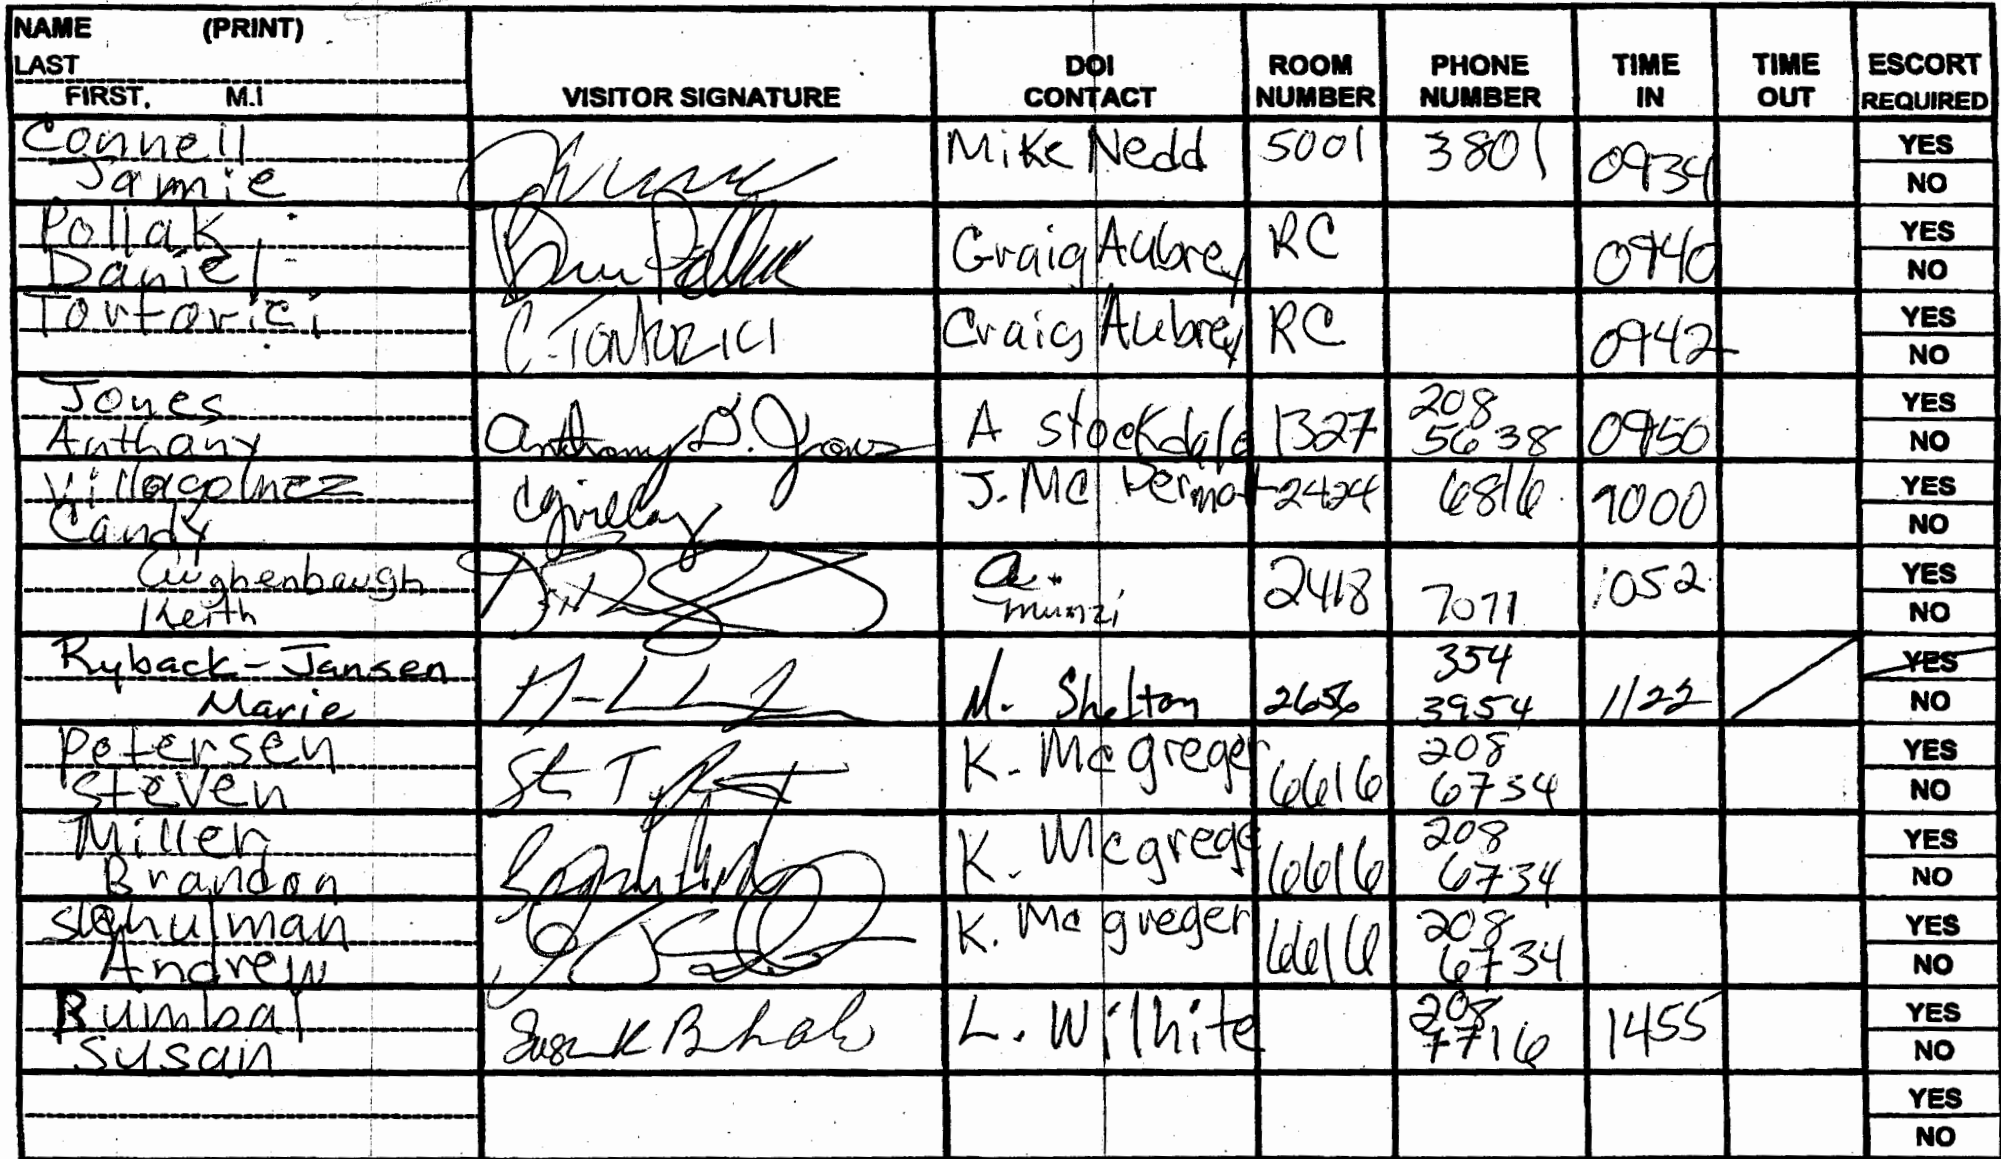 NAME (PRINT)
LAST
FIRST, M.I
VISITOR SIGNATURE
DOI CONTACT
ROOM NUMBER
PHONE NUMBER
TIME IN
TIME OUT
ESCORT REQUIRED
Connell
Jamie
Mike Nedd 5001 3801 0934 YES
NO
Pollak
Daniel
Craig Aubrey RC 0940 YES
NO
Tortorici
C. Tortorici Craig Aubrey RC 0942 YES
NO
Jones
Anthany
Anthony D. Jones A Stockdale 1327 208 5638 0950 YES
NO
Candy
J. McDermot 2424 6816 1000 YES
NO
Aughenbaugh
Keith
a. munzi 2418 7071 1052 YES
NO
Ryback-Jansen
Marie
M. Shelton 2656 354 3954 1122 YES
NO
Petersen
Steven
K. Mcgreger 6616 208 6734 YES
NO
Miller
Brandon
K. Mcgrege 6616 208 6734 YES
NO
Schulman
Andrew
K. Mcgreger 6616 208 6734 YES
NO
Bumbal
Susan
L. Wilhite 208 7716 1455 YES
NO
YES
NO